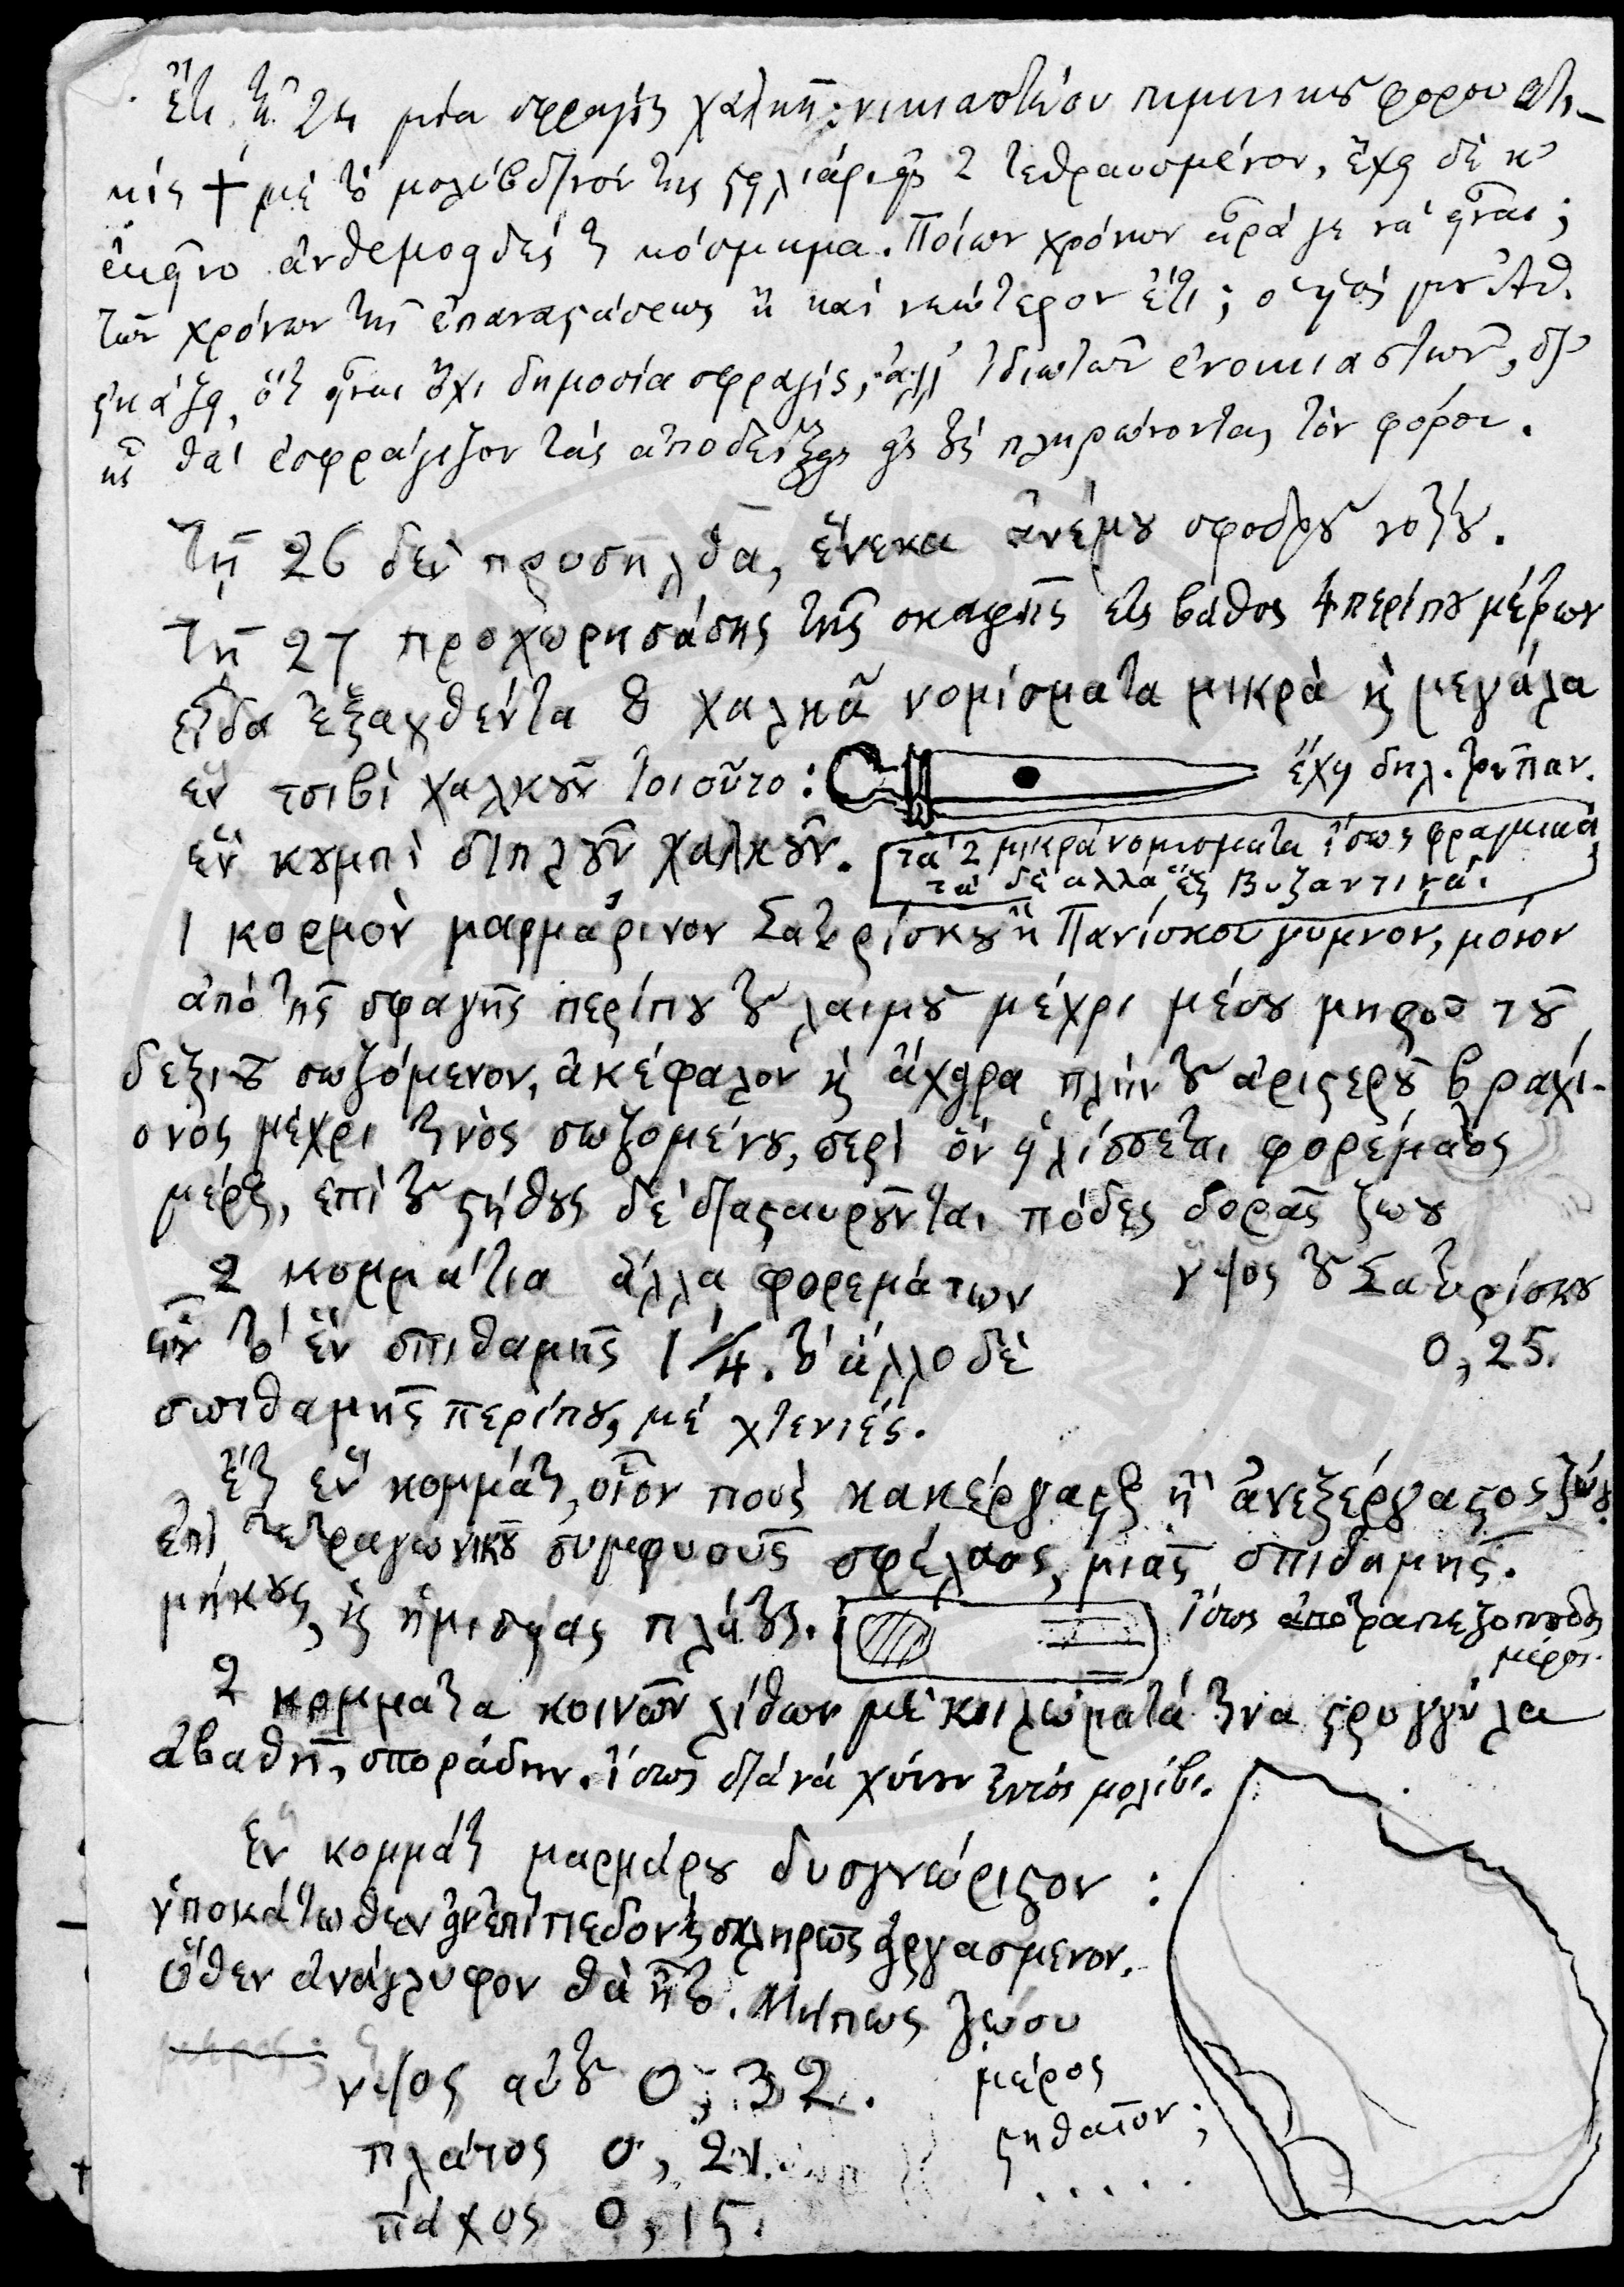 Ἔτι τῇ 24 μία σφραγὶς χαλκῆ: νικιαστῶν φόρου Ἀτι-
κῆς + μὲ τὸ μολύβδινον της τεθραυσμένον, ἔχει δὲ κ̀
ἐκεῖνο ἀνθεμοειδές τι κόσμημα. Ποίων χρόνων ἆρά γε νὰ εἶναι;
τῶν χρόνων τῆς ἐπαναστάσεως ἢ καὶ νεώτερον ἔτι; ὁ υἱός μου Ἀθ.
εἰκάζει, ὅτι εἶναι ὄχι δημοσία σφραγίς, ἀλλ' ἰδιωτῶν ἐνοικιαστῶν, δι'
ἧς θὰ ἐσφράγιζον τὰς ἀποδείξεις εἰς τοὺς πληρώνοντας τὸν φόρον.
Τῇ 26 δὲν προσῆλθα, ἕνεκα ἀνέμου σφοδροῦ νοτίου.
Τῇ 27 προχωρησάσης τῆς σκαφῆς εἰς βάθος 4 περίπου μέτρων
εἶδα ἐξαχθέντα 8 χαλκᾶ νομίσματα μικρὰ κ̀ μεγάλα
ἓν τσιβὶ χαλκοῦν τοιοῦτο: ἔχει δηλ. τρύπαν.
ἓν κουμπὶ διπλοῦν χαλκοῦν. τὰ 2 μικρὰ νομίσματα ἴσως φραγκικά
τὰ δὲ ἄλλα ἓξ Βυζαντινά.
1 κορμὸν μαρμάρινον Σατυρίσκου ἢ Πανίσκου γυμνόν, μόνον
ἀπὸ τῆς σφαγῆς περίπου τοῦ λαιμοῦ μέχρι μέσου μηροῦ τοῦ
δεξιοῦ σωζόμενον, ἀκέφαλον κ̀ ἄχειρα πλὴν τοῦ ἀριστεροῦ βραχί-
ονος μέχρι τινὸς σωζομένου, περὶ ὃν εἱλίσσεται φορέματος
μέρος, ἐπὶ τοῦ στήθους δὲ διασταυροῦνται πόδες δορᾶς ζώου
2 κομμάτια ἄλλα φορεμάτων ὕψος τοῦ Σατυρίσκου
ὧν τὸ ἓν σπιθαμῆς 1 1/4. τὸ ἄλλο δὲ 0,25.
σπιθαμῆς περίπου, μὲ χτενιές.
Ἔτι ἓν κομμάτι, οἷον ποὺς κακέργαστος ἢ ἀνεξέργαστος ζώου
ἐπὶ τετραγωνικοῦ συμφυοῦς σφέλαος, μιᾶς σπιθαμῆς
μήκους, κ̀ ἡμισείας πλάτους. Ἴσως τραπεζοποδος
μέρος.
2 κομματα κοινῶν λίθων μὲ κοιλώματά τινα στρογγύλα
ἀβαθῆ, σποράδην. Ἴσως διὰ νὰ χύνουν ἐντὸς μολίβι.
Ἓν κομμάτι μαρμάρου δυσγνώριστον:
ὑποκάτωθεν εἶν' ἐπίπεδον κ̀ σκληρῶς εἰργασμενον.
ὅθεν ἀνάγλυφον θὰ ἦτο. Μήπως ζώου
μέρος
στηθαῖον;
ὕψος αὐτοῦ 0,32.
πλάτος 0,21.
πάχος 0,15.